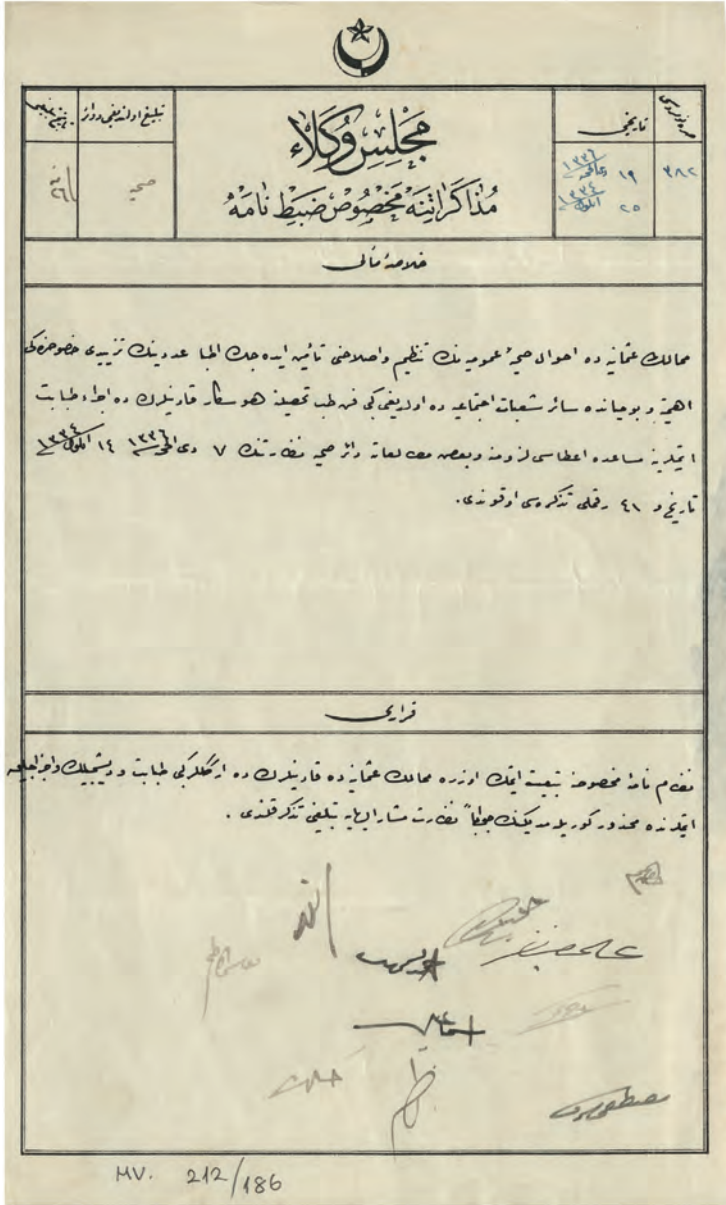 صره نومروسی
تاریخی
مَجْلِسِ وُكَلَاءْ
مُذَاكَرَاتِنَهْ مَخْصُوصْ ضَبِطْنَامَهْ
تبلیغ اولندیغی دوائر
٣٨٢
١٩ ذی الحجه ١٣٣٦
٢٥ ایلول ١٣٣٤
صحیه
خلاصۀ مآلی
ممالك عثمانیه ده احوال صحیۀ عمومیه نك تنظیم و اصلاحنی تأمین ایده جك اطبا عددینك تزییدی خصوصنده كی
اهمیته و بومیانده سائر شعبات اجتماعیه ده اولدیغی كبی فن طب تحصیلنه هوسكار قادینلرك ده اجراء طبابت
ایتملرینه مساعده اعطاسی لزومنه و بعض مطالعاته دائر صحیه نظارتنك ٧ ذی الحجه ١٣٣٦ ١٤ ایلول ١٣٣٤
تاریخ و ٤١ رقملی تذكره سی اوقوندی.
قراری
نظامنامۀ مخصوصنه تبعیت ایتمك اوزره ممالك عثمانیه ده قادینلرك ده ارككلر كبی طبابت و دیشجیلك و اجزاجیلق
ایتملرنده محذور كوریله مدیكنك جواباً نظارت مشار الیهایه تبلیغی تذكر قلندی.
MV. 212/186